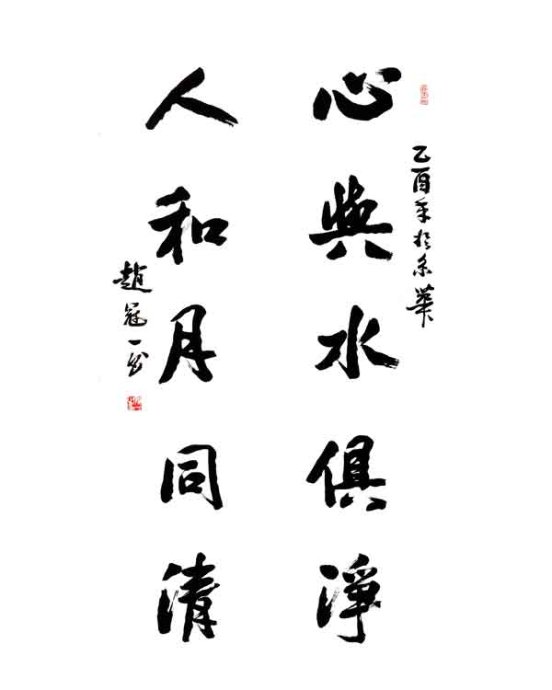 乙酉年於京華
心與水俱淨
人和月同清
趙冠一书